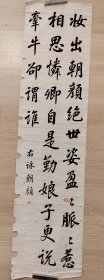 妝出朝顏絕世姿盈盈脈脈惹
相思憐卿自是勤娘子更說
牽牛卻謂誰
右詠朝顏